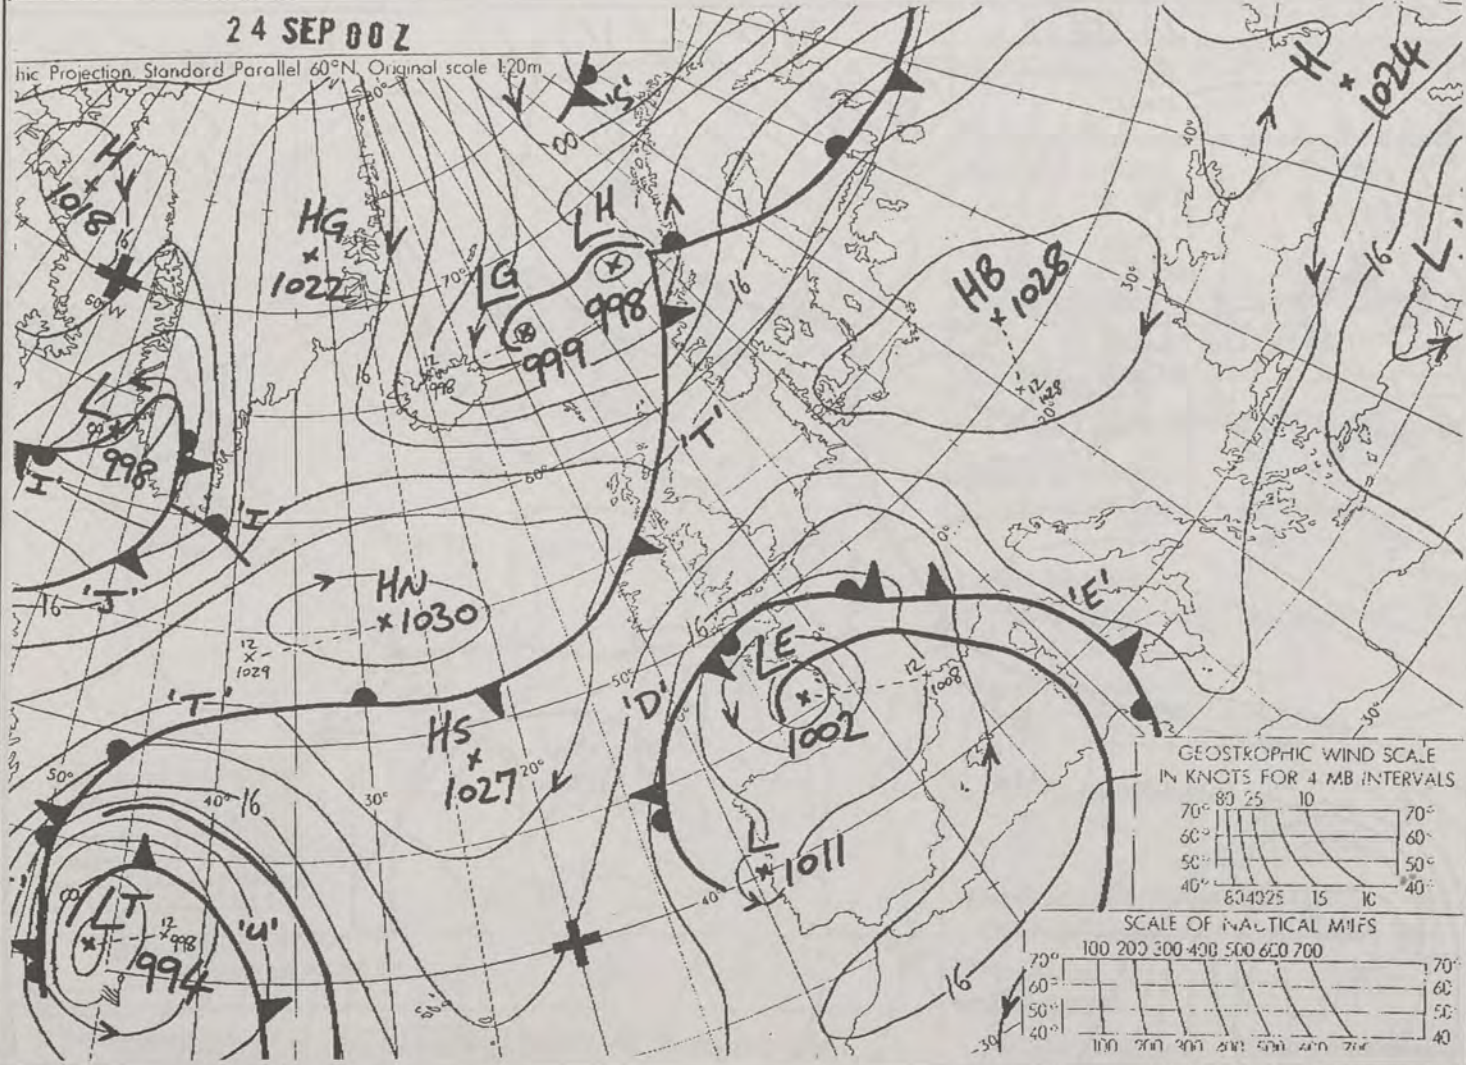 24 SEP 00Z
hic Projection, Standard Parallel 60°N, Original scale 1:20m
80°
'S'
00
H
1024
40°
H
1018
16
60°W
HG
1022
70°
LH
998
LG
999
12
998
16
16
HB
1028
30°
12
1028
20°
16
L
L
998
'I'
'I'
'J'
16
60°
'T'
0°
HN
1030
12
1029
16
50°
'T'
HS
1027
20°
30°
40°
50°
16
'D'
LE
1002
12
1008
'E'
30°
L
1011
40°
LT
994
12
998
'U'
16
30
GEOSTROPHIC WIND SCALE
IN KNOTS FOR 4 MB INTERVALS
80 25 10
70° 70°
60° 60°
50° 50°
40° 40°
80 40 25 15 10
SCALE OF NAUTICAL MILES
100 200 300 400 500 600 700
70° 70°
60° 60
50° 50
40° 40
100 200 300 400 500 600 700